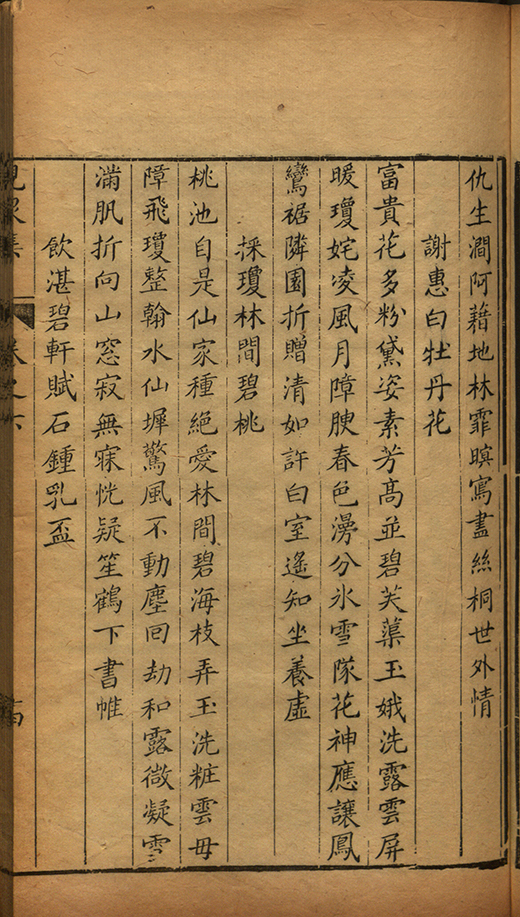 仇生澗阿藉地林霏暝寫盡絲桐世外情
謝惠白牡丹花
富貴花多粉黛姿素芳髙並碧芙蕖玉娥洗露雲屏
暖瓊姹凌風月障腴春色澷分氷雪隊花神應讓鳳
鸞裾隣園折贈清如許白室遙知坐養虛
採瓊林間碧桃
桃池自是仙家種絕愛林間碧海枝弄玉洗粧雲母
障飛瓊整翰水仙墀驚風不動塵囘劫和露微凝雪
滿肌折向山窓寂無寐恍疑笙鶴下書帷
飲湛碧軒賦石鍾乳盃